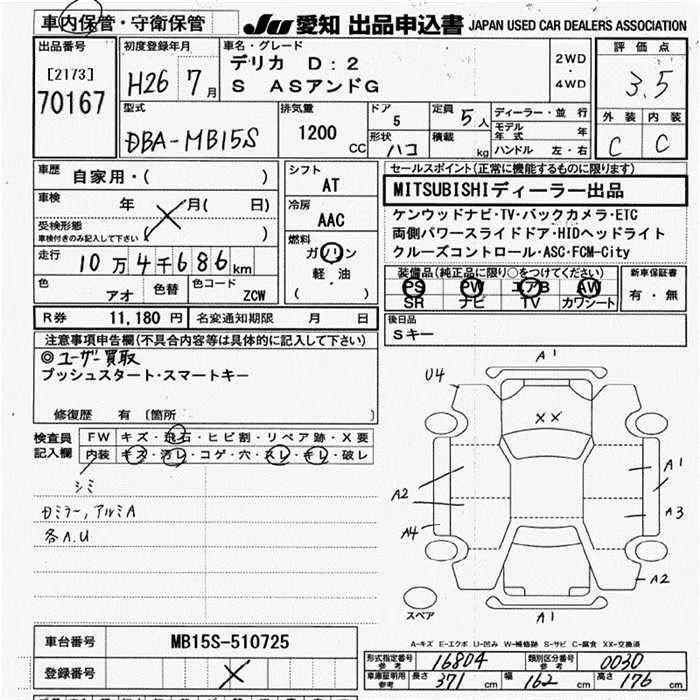 車内保管・守衛保管 JU 愛知 出品申込書 JAPAN USED CAR DEALERS ASSOCIATION
出品番号 初度登録年月 車名・グレード 評価点
[2173] H26 7月 デリカ D:2 2WD・4WD 3.5
70167 S ASアンドG
外装 内装
型式 排気量 ドア 定員 ディーラー・並行
DBA-MB15S 1200CC 5 5人 モデル年式 年 C C
形状 ハコ 積載 kg ハンドル 左・右
車歴 自家用・( ) シフト AT セールスポイント(正常に機能するものに限ります)
車検 年 月( 日) 冷房 AAC MITSUBISHIディーラー出品
受検形態 車検付きのみ記入して下さい ( ) ケンウッドナビ・TV・バックカメラ・ETC
燃料 ガソリン・軽・油 ( ) 両側パワースライドドア・HIDヘッドライト
走行 10万4千686km クルーズコントロール・ASC・FCM-City
色 アオ 色替 色コード ZCW 装備品(純正品に限り○をつけてください) 新車保証書
PS PW エアB AW 有・無
SR ナビ TV カワシート
R券 11,180円 名変通知期限 月 日 後日品
Sキー
注意事項申告欄(不具合内容等は具体的に記入して下さい)
◎ユーザー買取
プッシュスタート・スマートキー
修復歴 有 〔箇所 〕
検査員記入欄 FW キズ・飛石・ヒビ割・リペア跡・X要
内装 キズ・汚レ・コゲ・穴・スレ・キレ・破レ
シミ
カミラー,アルミA
各A.U
A1
U4
XX
A1
A2
A3
A4
A2
スペア
A1
A-キズ E-エクボ U-凹み W-補修跡 S-サビ C-腐食 XX-交換済
車台番号 MB15S-510725
登録番号
形式指定番号 参考 16804 類別区分番号 参考 0030
車庫証明用 参考 長さ 371cm 幅 162cm 高さ 176cm